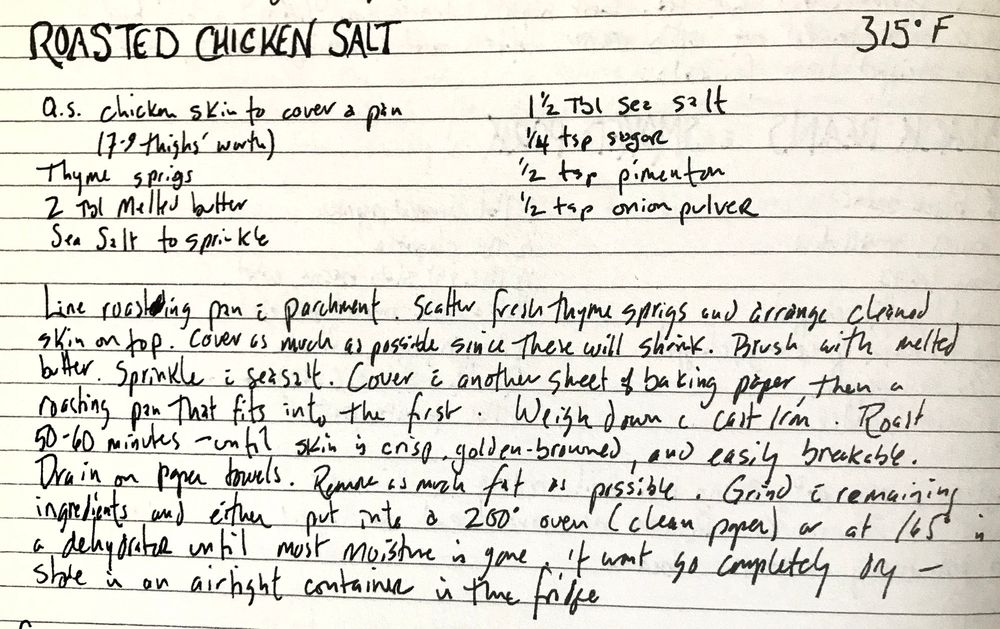 ROASTED CHICKEN SALT 315° F
Q.s. chicken skin to cover a pan 1 1/2 Tbl sea salt
(7-9 thighs' worth) 1/4 tsp sugar
Thyme sprigs 1/2 tsp pimenton
2 Tbl Melted butter 1/2 tsp onion pulver
Sea Salt to sprinkle
Line roasting pan c̄ parchment. Scatter fresh thyme sprigs and arrange cleaned
skin on top. Cover as much as possible since there will shrink. Brush with melted
butter. Sprinkle c̄ sea salt. Cover c̄ another sheet of baking paper, then a
roasting pan that fits into the first. Weigh down c̄ cast iron. Roast
50-60 minutes - until skin is crisp, golden-browned, and easily breakable.
Drain on paper towels. Remove as much fat as possible. Grind c̄ remaining
ingredients and either put into a 200° oven (clean paper) or at 165° in
a dehydrator until most moisture is gone. it wont go completely dry –
store in an airtight container in the fridge